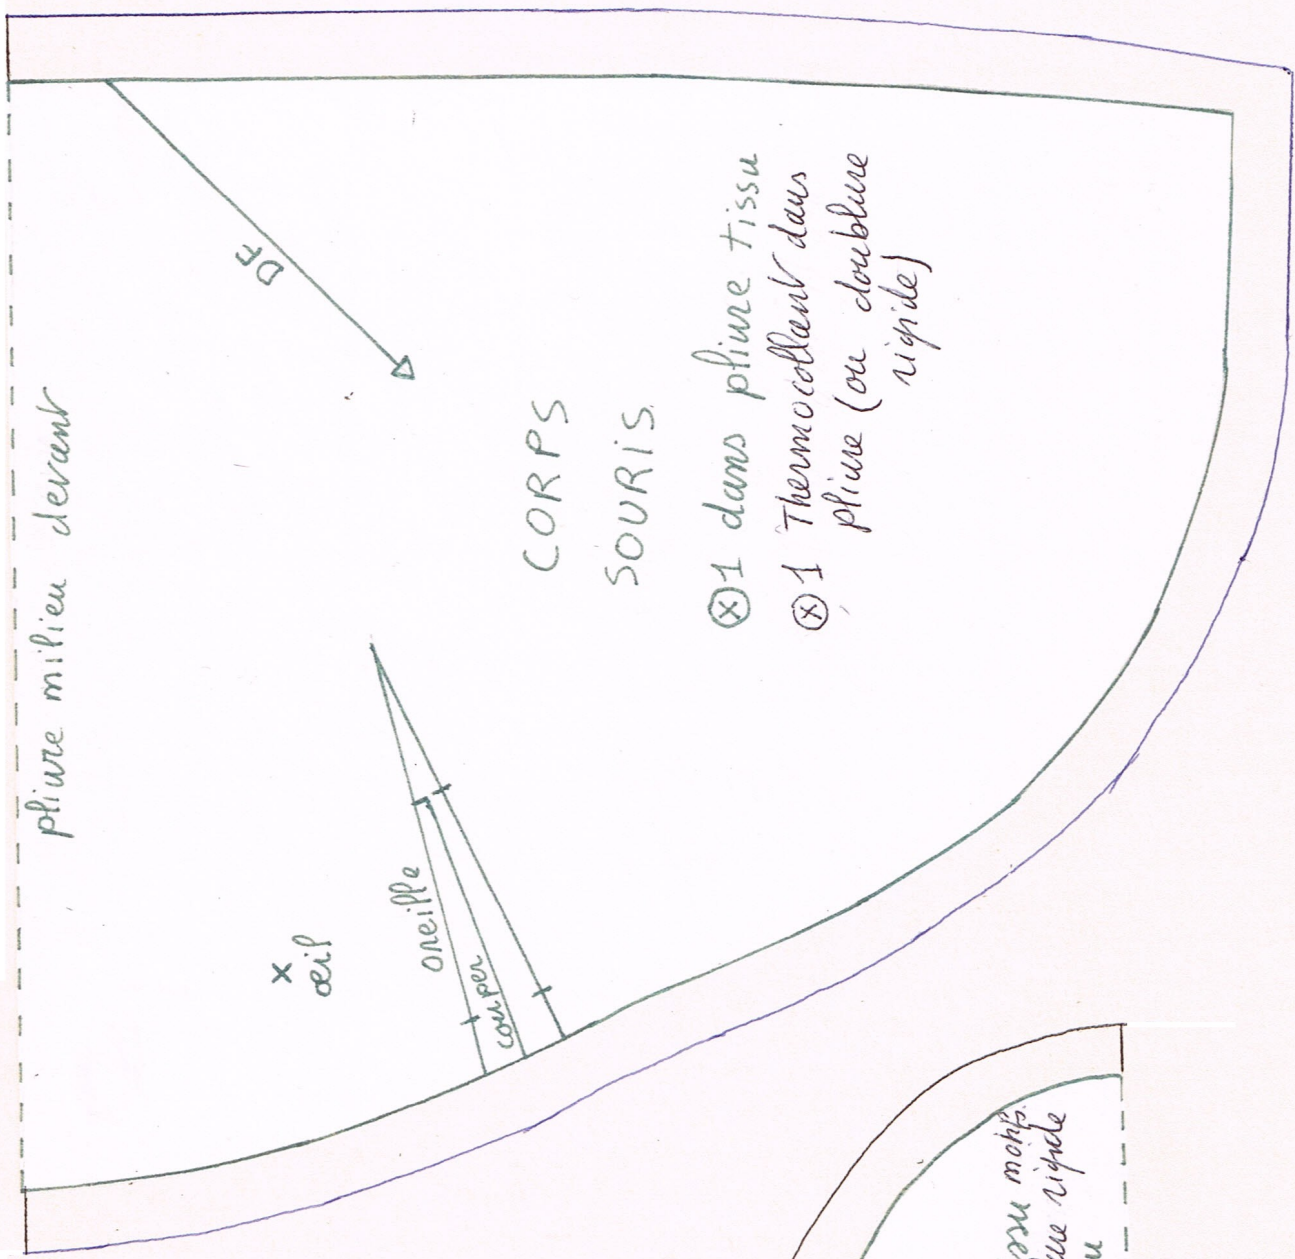 pliure milieu devant
DF
CORPS
SOURIS
ⓧ1 dans pliure tissu
ⓧ1 Thermocollant dans
pliure (ou doublure
rigide)
oreille
couper
x
œil
ssu motifs
ure rigide